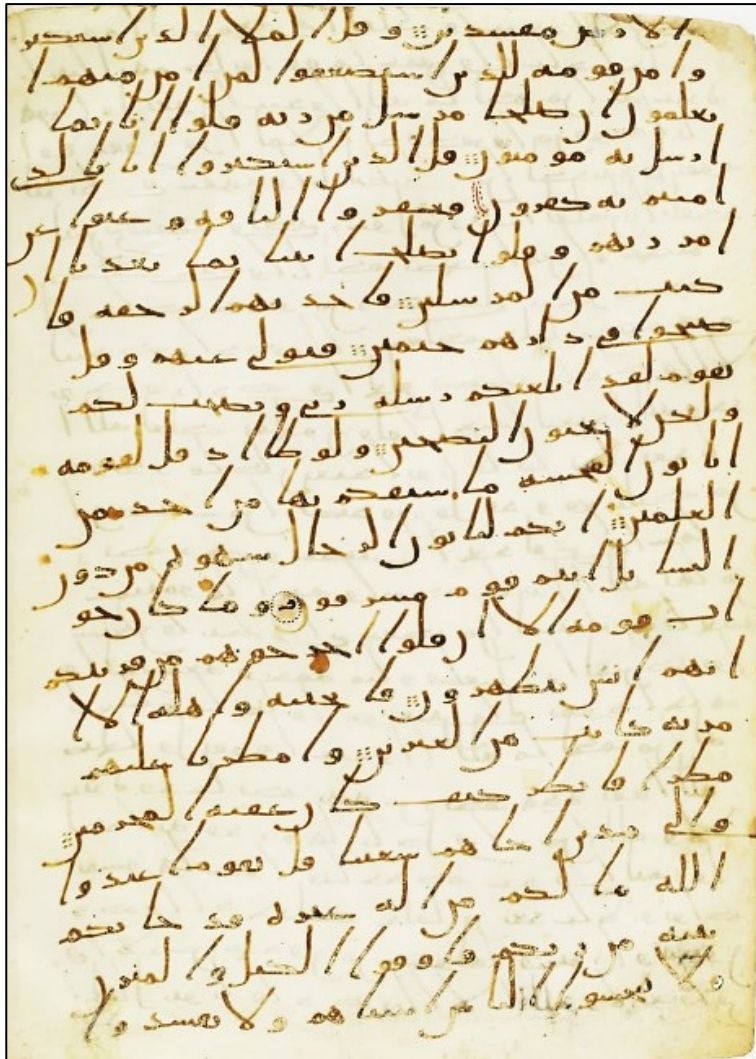 الارض مفسدين وقل الملا الذين استكبر
وا من قومه للذين استضعفوا لمن امن منهم ا
تعلمون ان صلحا مرسل من ربه قلوا انا بما
ارسل به مومنون قل الذين استكبروا انا بالذي
امنتم به كفرون فعقروا الناقه وعتوا عن
امر ربهم وقلوا يصلح ايتنا بما تعدنا ان
كنت من المرسلين فاخذتهم الرجفه فا
صبحوا في دارهم جثمين فتولى عنهم وقل
يقوم لقد ابلغتكم رسله ربي ونصحت لكم
ولكن لا تحبون النصحين ولوطا اذ قل لقومه
اتاتون الفحشه ما سبقكم بها من احد من
العلمين انكم لتاتون الرجال شهوه من دون
النسا بل انتم قوم مسرفون وما كان جو
اب قومه الا ان قلوا اخرجوهم من قريتكم
انهم انس يتطهرون فانجينه واهله الا ا
مرته كانت من الغبرين وامطرنا عليهم
مطرا فانظر كيف كان عقبه المجرمين
والى مدين اخاهم شعيبا قل يقوم اعبدوا
الله ما لكم من اله غيره قد جاتكم
بينه من ربكم فاوفوا الكيل والميزن
ولا تبخسوا الناس اشياهم ولا تفسدوا